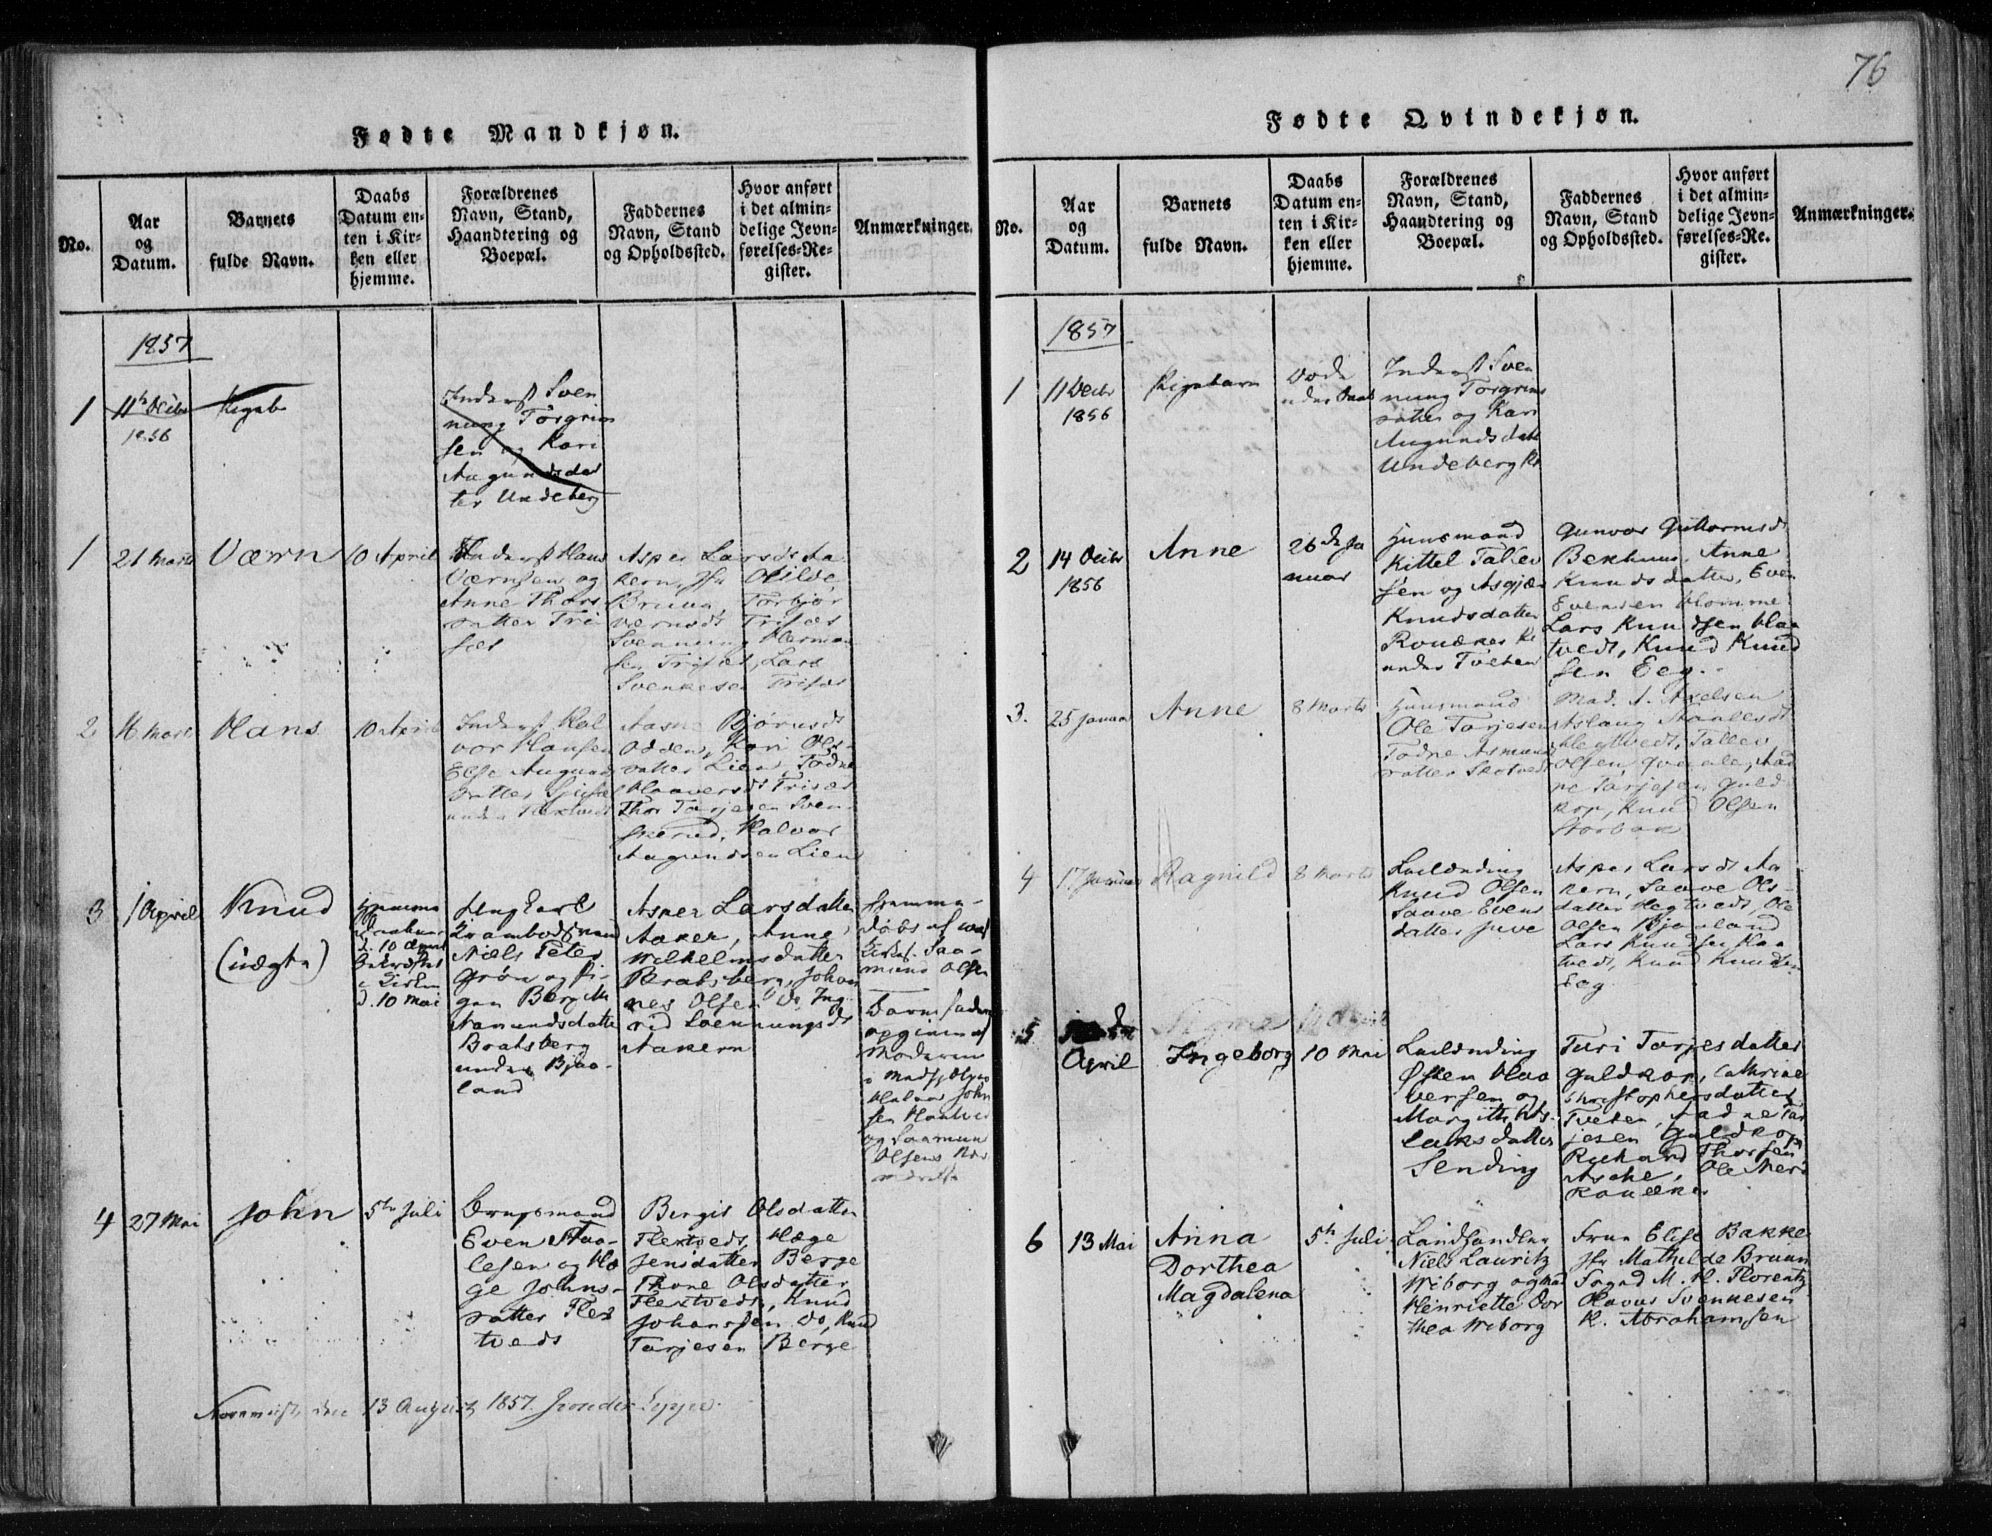 Fødte Mandkjøn.
No.
Aar
og
Datum.
Barnets
fulde Navn.
Daabs
Datum en-
ten i Kir-
ken eller
hjemme.
Forældrenes
Navn, Stand,
Haandtering og
Boepæl.
Faddernes
Navn, Stand
og Opholdssted.
Hvor anført
i det almin-
delige Jevn-
førelses-Re-
gister.
Anmærkninger.
1857
1
11te Decbr
1856
Pigeb
Inderst Sven
nung Torgrim
sen og Kari
Aagundsdat
ter Undeberg
1
21 Marts
Værn
10 April
Inderst Hans
Værnsen og
Anne Thors
datter Tri
sæt
Asper Larsdt Aa
kern, Jfr Otilde
Bruun, Torbjør
Værnsdt Trisæt
Svennung Herman
sen Trisæt, Lars
Svenkesen Trisæt
2
16 Marts
Hans
10 April
Inderst Hal
vor Hansen
Else Aagunds
datter
under Flextvedt
Aasne Bjørnsdt
Odden, Kari Ols-
datter Lien, Todne
Haaversdt Trisæt
Thor Tarjesen Sven
skerud, Halvor
Aagundsen Lien
3
1 April
Knud
(uægte)
Hjemme
d. 10 April
i Kirken
d. 10 Mai
Ungkarl
Krambodsvend
Niels Peter
Grøn og Pi-
gen Bergit
Aamundsdatter
Bratsberg
under Bjaa-
land
Asper Larsdatter
Aaker, Anne
Wilhelmsdatter
Bratsberg, Johan
nes Olsen do, Ing
rid Svennungsdt
Aakern
Hjemme-
døbt af
Saa-
mund Olsen
Barnefader
opgiven af
Moderen
Halvor John
sen
og Saamund
Olsen
4
27 Mai
John
5te Juli
Brugsmand
Even Staa-
lesen og Hæ
ge Johns-
datter Flex
tvedt
Bergit Olsdatter
Flextvedt, Hæge
Jensdatter Berge
Thone Olsdatter
Flextvedt, Knud
Johannsen do, Knud
Tarjesen Berge
den 13 August 1857.
76
Fødte Qvindekjøn.
No.
Aar
og
Datum.
Barnets
fulde Navn.
Daabs
Datum en-
ten i Kir-
ken eller
hjemme.
Forældrenes
Navn, Stand,
Haandtering og
Boepæl.
Faddernes
Navn, Stand
og Opholdssted.
Hvor anført
i det almin-
delige Jevn-
førelses-Re-
gister.
Anmærkninger.
1857
1
11 Decbr
1856
Pigebarn
Døde
uden Daab
Inderst Sven
nung Torgrims
datter og Kari
Augundsdatt
Undeberg
2
14 Decbr
1856
Anne
26de Ja
nuar
Huusmand
Kittel Tallev
sen og Asgjær
Knudsdatter
Rouæker
under Tveten
Gunvor Guttormsdt
Bekhuus, Anne
Knudsdatter, Even
Evensen Blomme
Lars Knudsen Klaa
tvedt, Knud Knud
sen Eeg.
3.
25 Januar
Anne
8 Marts
Huusmand
Ole Tarjesen
Todne Asmunds
datter Skotvedt
Mad. A. Axelsen
Aslaug Staalesdt
Hegtvedt, Tallev
Olsen Qvaale, Aad
ne Tarjesen Guld
kop, Knud Olsen
Storbak
4
17 Januar
Ragnild
8 Marts
Leilænding
Knud Olsen
Saave Evens
datter Juve
Asper Larsdt Aa
kern, Saave Ols-
datter Hegtvedt, Ole
Olsen Bjaaland
Lars Knudsen Klaa
tvedt, Knud Knudsen
Eeg
5
April
Ingeborg
10 Mai
Leilænding
Østen Haa
versen og
Margith As-
laksdatter
Sending
Turi Tarjesdatter
Guldkop, Cathrine
Christophersdatter
Tveten, Aadne Tar
jesen Guldkop
Richard Thorsen
Asche, Ole Ners
Rouæker
6
13 Mai
Anna
Dorthea
Magdalena
5te Juli
Landhandler
Niels Lauritz
Wiborg og Mad
Henriette Dor
thea Wiborg
Frue Elise Bakke
Jfr Mathilde Bruun
Sogpd M. H. Florentz
Havor Svenkesen
K. Abrahamsen